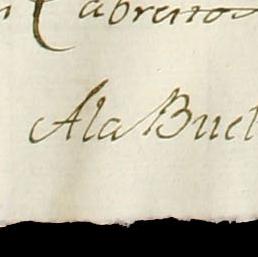 Cabreros
Ala Buel